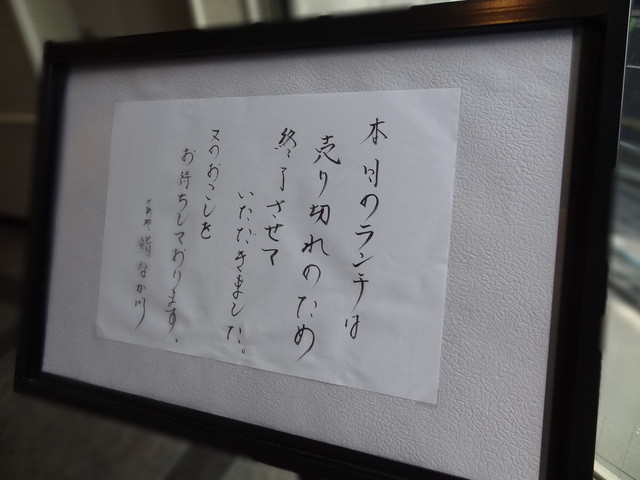 本日のランチは
売り切れのため
終了させて
いただきました。
又のおこしを
お待ちしております。
なか川